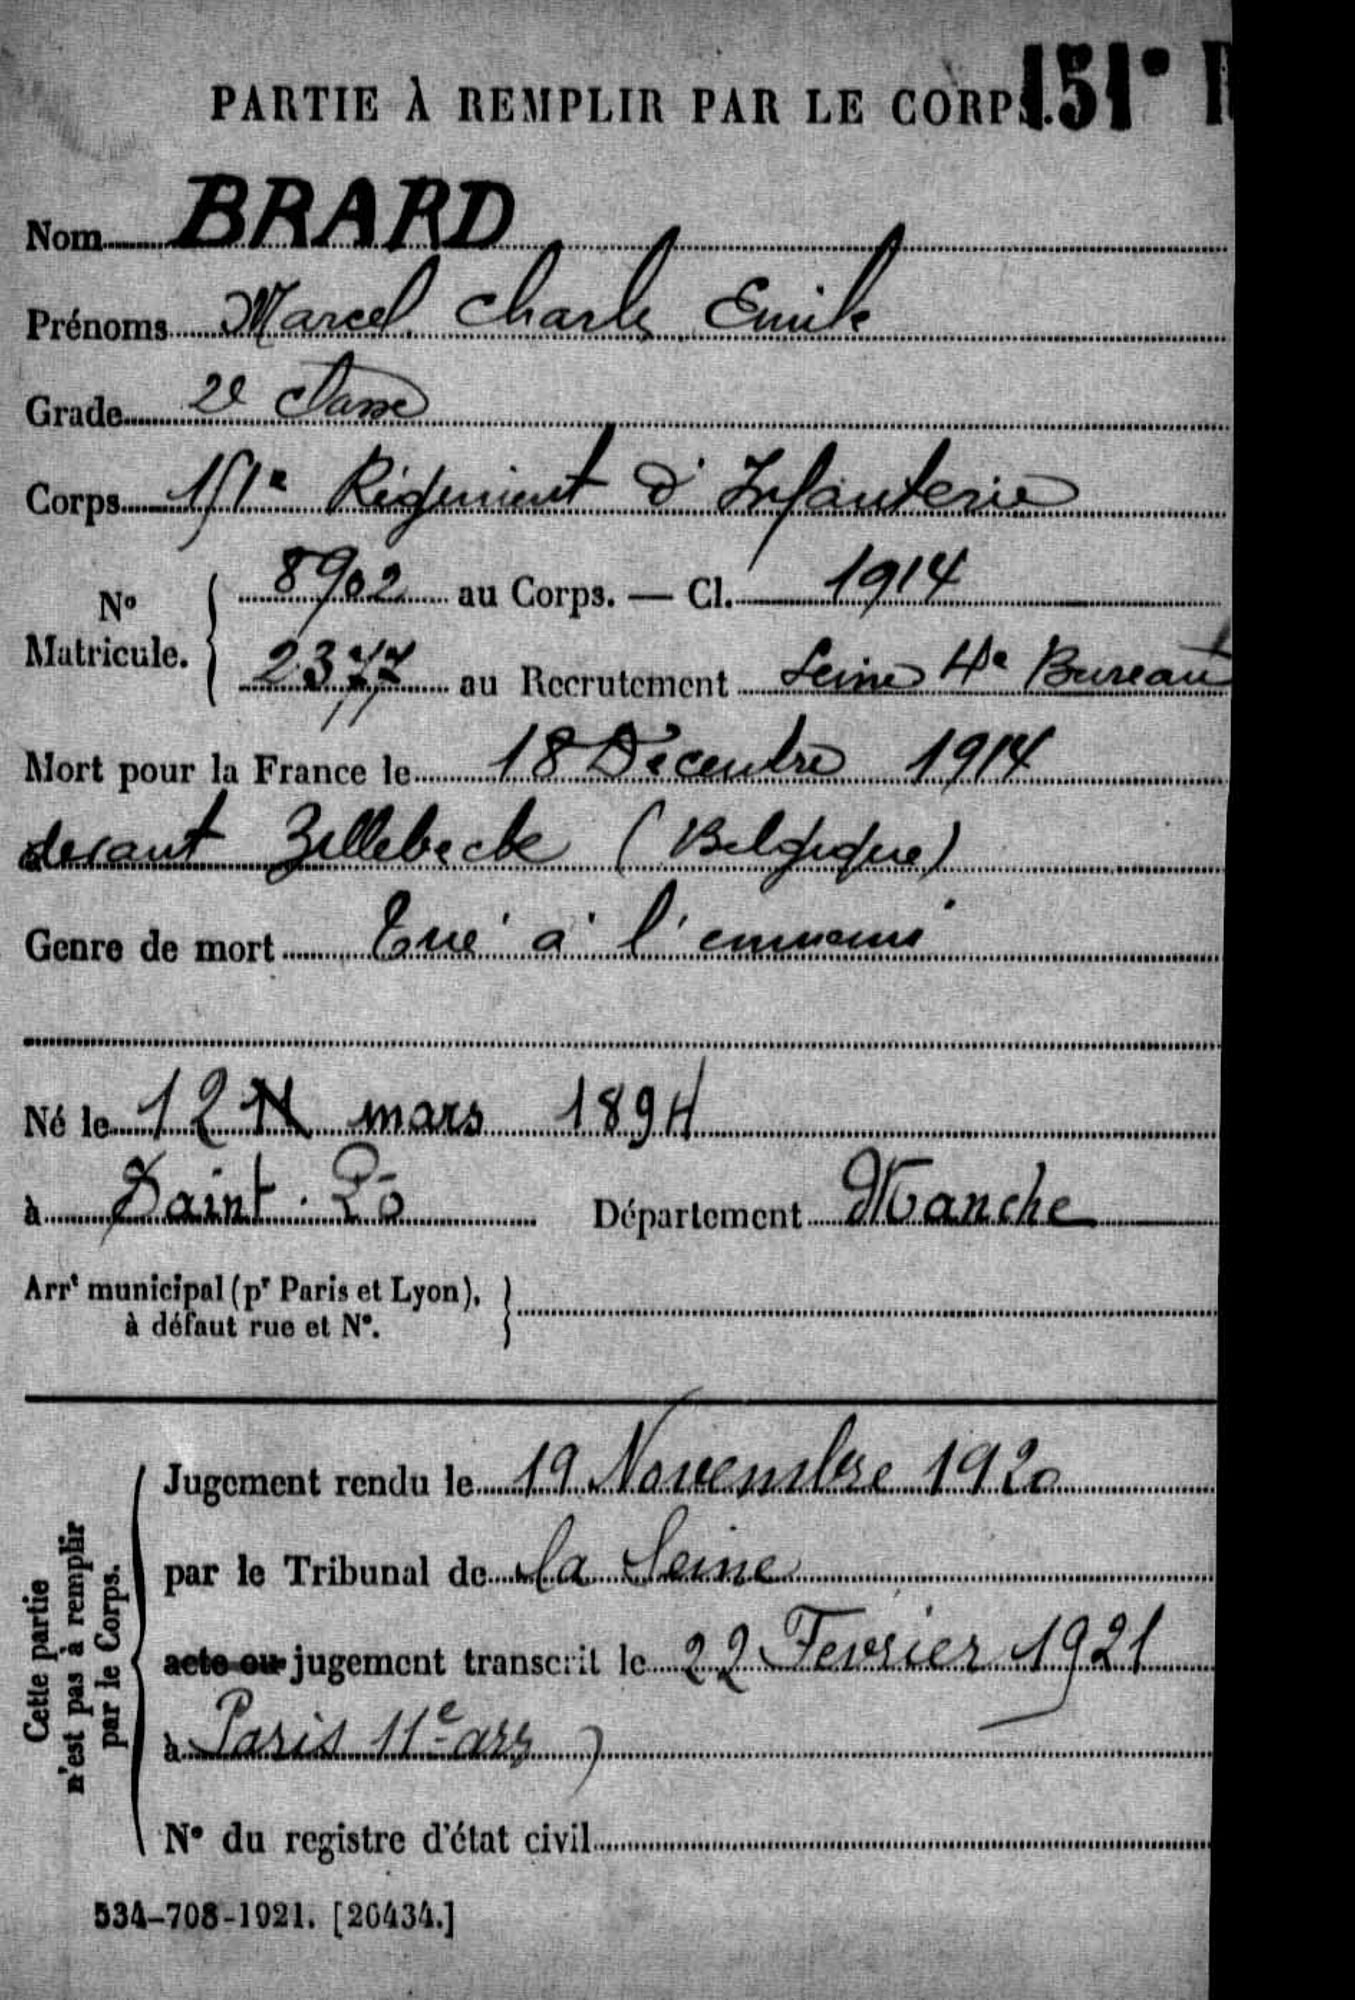 PARTIE À REMPLIR PAR LE CORPS. 151e R
Nom BRARD
Prénoms Marcel Charles Emile
Grade 2e classe
Corps 151e Régiment d'Infanterie
No Matricule. 8902 au Corps. — Cl. 1914
2377 au Recrutement Seine 4e Bureau
Mort pour la France le 18 Décembre 1914
devant Zillebeck (Belgique)
Genre de mort Tué à l'ennemi
Né le 12 mars 1894
à Saint-Lô Département Manche
Arrt municipal (pr Paris et Lyon),
à défaut rue et No.
Cette partie n'est pas à remplir par le Corps.
Jugement rendu le 19 Novembre 1920
par le Tribunal de la Seine
acte ou jugement transcrit le 22 Fevrier 1921
à Paris 11e arr
No du registre d'état civil
534-708-1921. [26434.]